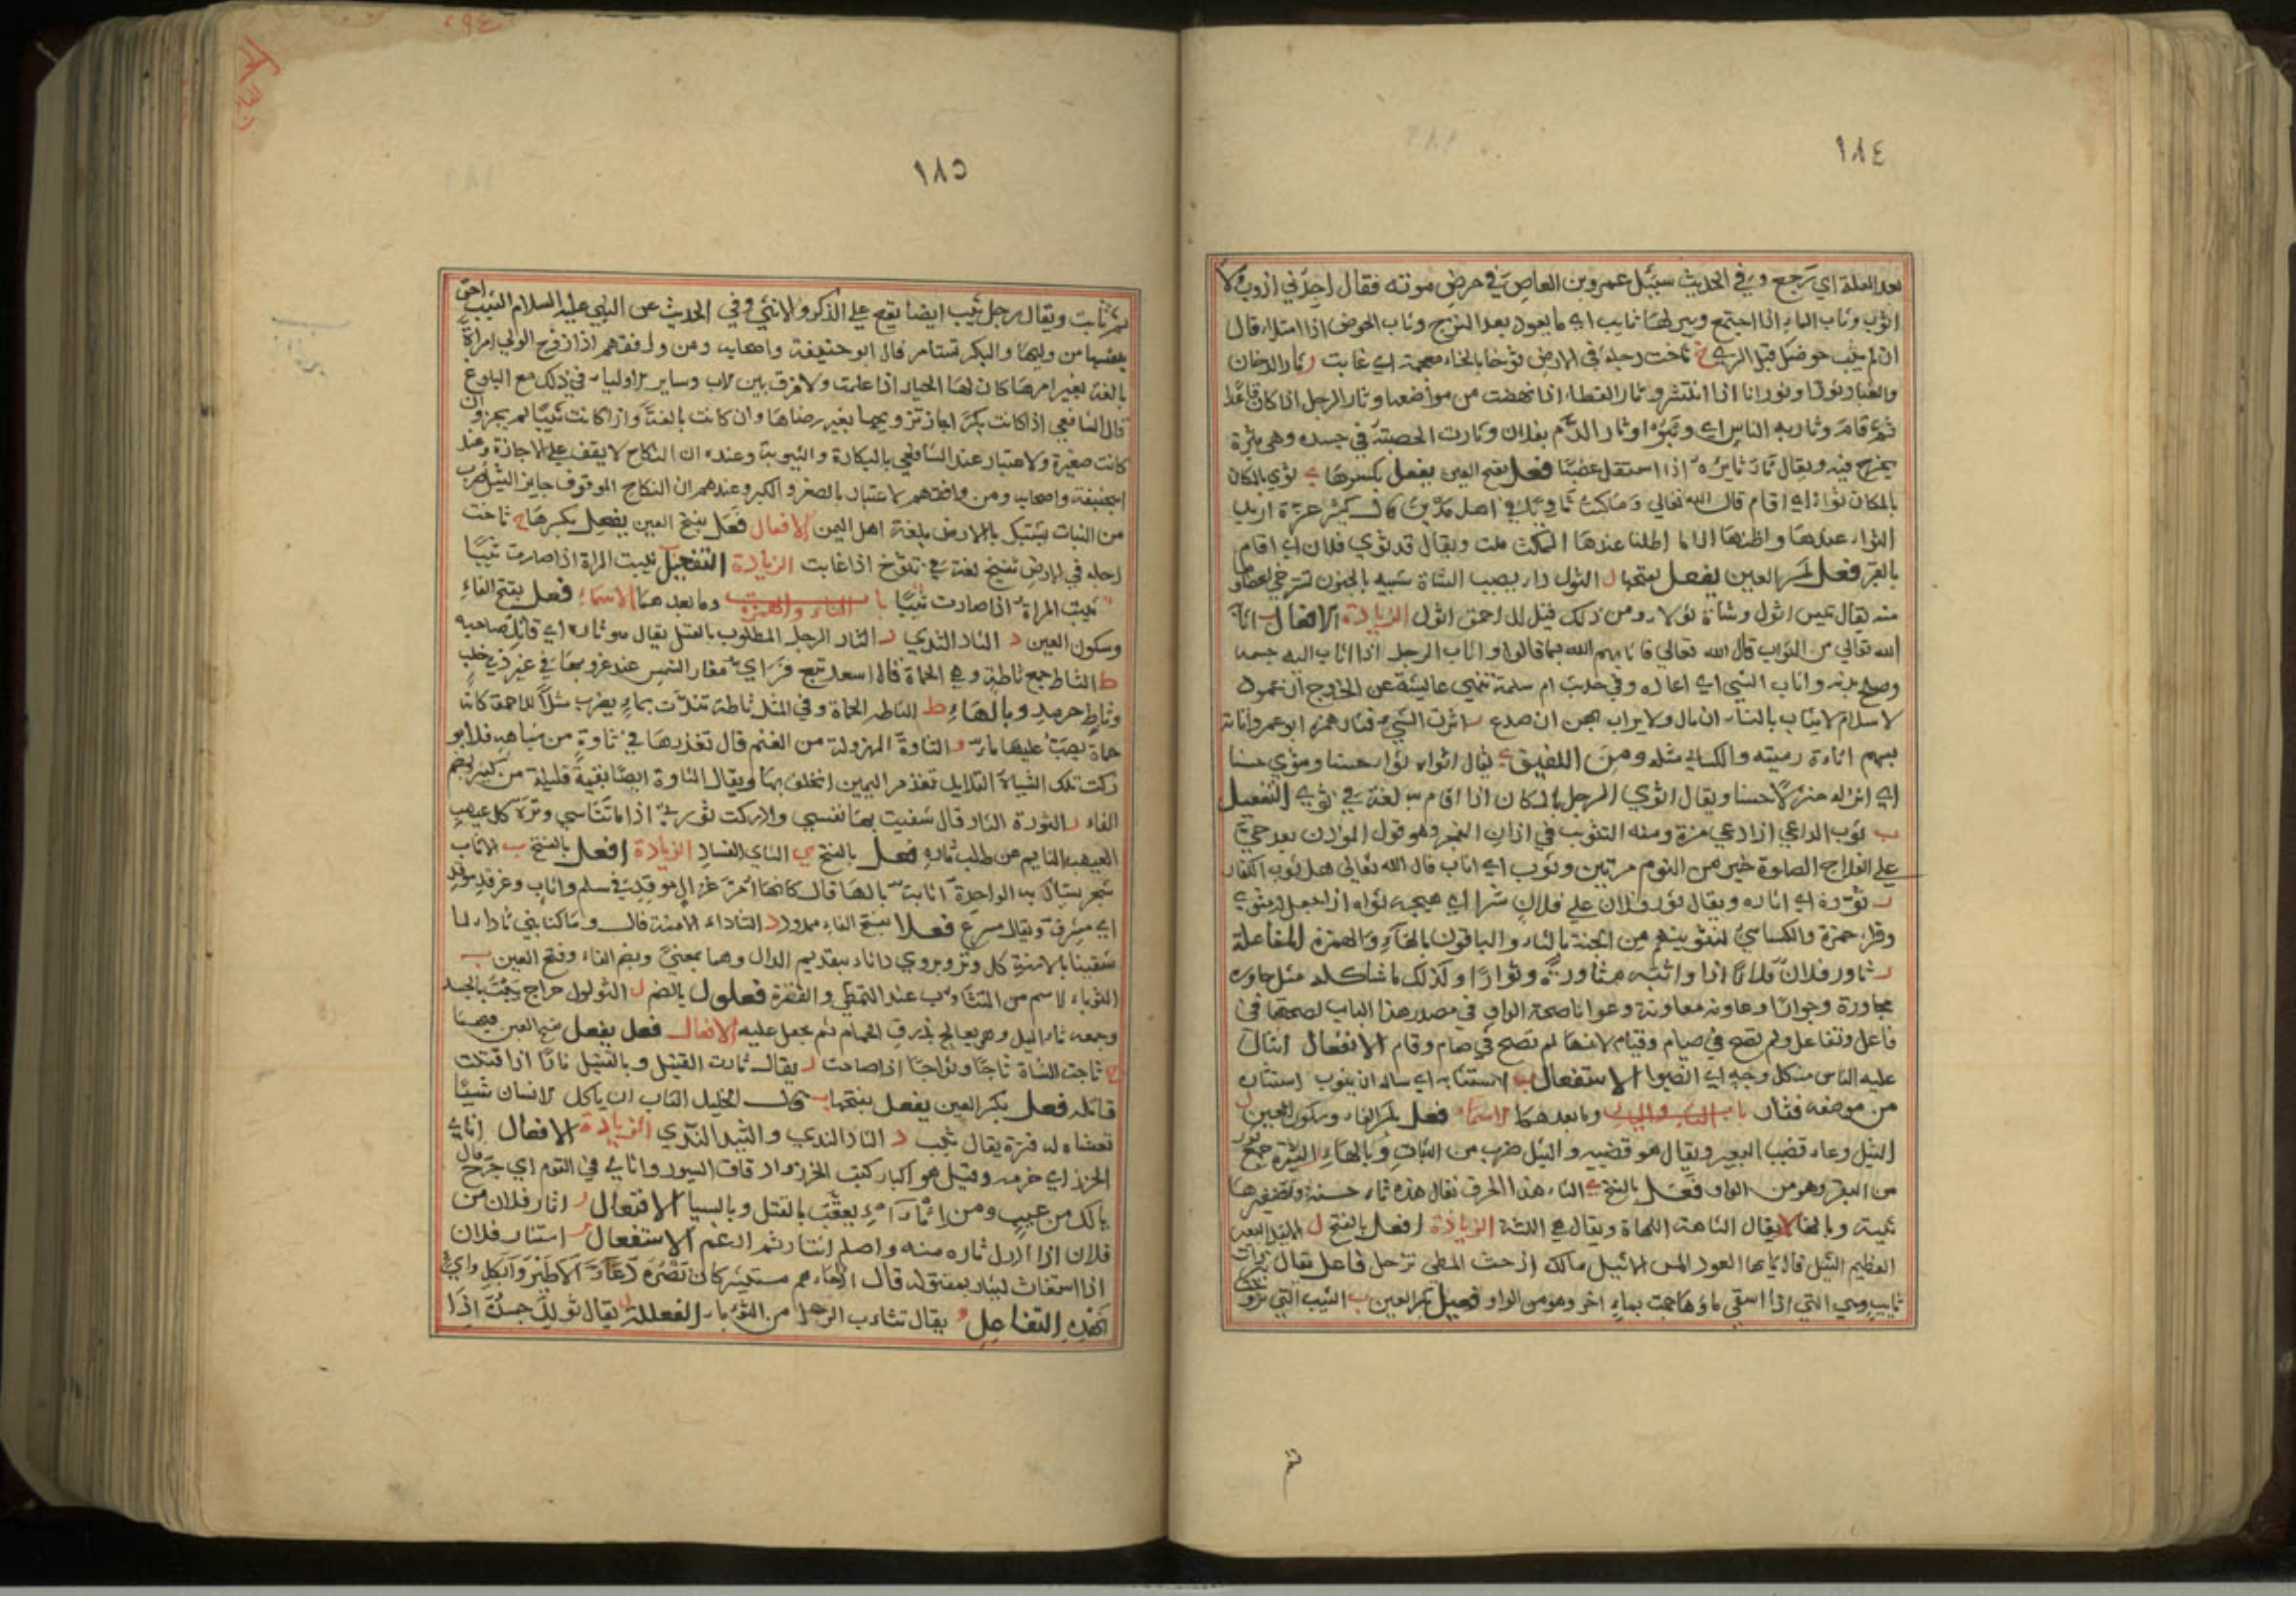 ١٨٤
بعد العلة اي رجع وفي الحديث سئل عمرو بن العاص في مرض موته فقال اجدني اذوب ولا
اثوب وثاب الماء اذا اجتمع وبير لها ثايب اي ما يعود بعد النزح وثاب الحوض اذا امتلا قال
ان لم يثب حوضك قبل الري خ ثاخت رجله في الارض ثوخا بالخاء معجمة اي غابت ر ثار الدخان
والغبار ثورا وثورانا اذا انتشر وثار القطا اذا نهضت من مواضعها وثار الرجل اذا كان قاعدا
ثم قام وثار به الناس اي وثبوا وثار الدم بفلان وثارت الحصبة في جسده وهي بثرة
يخرج فيه ويقال ثار ثايره اذا استقل غضبا فعل بفتح العين يفعل بكسرها ي ثوي بالمكان
بالمكان ثواء اي اقام قال الله تعالي وما كنت ثاويا في اهل مدين قال كثير عزة اريد
الثواء عندها واظنها اذا ما اطلنا عندها المكث ملت ويقال قد ثوي فلان اي اقام
بالقبر فعل بكسر العين يفعل بفتحها ل الثول داء يصيب الشاة شبيه بالجنون تسترخي اعضاؤ
منه يقال تيس اثول وشاة ثولاء ومن ذلك قيل للاحمق اثول الزيادة الافعال ب اثابه
الله تعالي من الثواب قال الله تعالي فاثابهم الله بما قالوا واثاب الرجل اذا اثاب اليه جسمه
وصلح بدنه واثاب الشي اي اعاده وفي حديث ام سلمة تنهي عايشة عن الخروج ان عمود
الاسلام لا يثاب بالنساء ان مال ولا يراب بهن ان صدع ر اثرت الشي فثار همزه ابو عمرو اثارته
بسهم اثاءة رميته والكسائي مثله ومن اللفيق ي يقال اثواه ثواء حسنا ومثوي حسنا
اي انزله منزلا حسنا ويقال اثوي الرجل بالمكان اذا اقام به لغة في ثوي التفعيل
ب ثوب الداعي اذا دعي مرة ومنه التثويب في اذان الفجر وهو قول الموذن بعد حي
علي الفلاح الصلوة خير من النوم مرتين وثوب اي اثاب قال الله تعالي هل ثوب الكفار
ر ثوره اي اثاره ويقال ثور فلان علي فلان شرا اي هيجه
وقرا حمزة والكسائي لنثوينهم من الجنة بالثاء والباقون بالباء والهمزة المفاعلة
ر ثاور فلان فلانا اذا واثبه مثاورة وثوارا وكذلك ما شاكله مثل جاوره
مجاورة وجوارا وعاونه معاونة وعوانا صحة الواو في مصدر هذا الباب لصحتها في
فاعل وتفاعل ولم تصح في صيام وقيام لانها لم تصح في صام وقام الانفعال انثال
عليه الناس من كل وجه اي انصبوا الاستفعال ب استثابه اي ساله ان يثوب استثار
من موضعه فثار باب الثاء والياء وما بعدهما الاسماء فعل بكسر الفاء وسكون العين ل
الثيل وعاء قضيب البعير ويقال هو قضيبه والثيل ضرب من النبات وبالهاء الثيرة جمع ثور
من البقر وهو من الواو فعل بالفتح ي الثاء هذا الحرف يقال هذه ثاء حسنة وتصغيرها
ثيية وبالهاء يقال الثاهة اللهاة ويقال هي اللثة الزيادة افعل بالفتح ل الاثيل البعير
العظيم الثيل قال يا ايها العود المسن الاثيل مالك اذ حث المطي تزحل فاعل يقال بير ذات
ثايب وهي التي اذا استقي ماؤها جمت بماء اخر وهو من الواو فعيل بكسر العين ب الثيب التي تزو
ثم
١٨٥
ثم ثابت ويقال رجل ثيب ايضا يقع علي الذكر والانثي وفي الحديث عن النبي عليه السلام الثيب احق
بنفسها من وليها والبكر تستامر قال ابو حنيفة واصحابه ومن وافقهم اذا زوج الولي امراة
بالغة بغير امرها كان لها الخيار اذا علمت ولا فرق بين الاب وساير الاولياء في ذلك مع البلوغ
قال الشافعي اذا كانت بكرا جاز تزويجها بغير رضاها وان كانت بالغة واذا كانت ثيبا لم يجز وان
كانت صغيرة والاعتبار عند الشافعي بالبكارة والثيوبة وعنده ان النكاح لا يقف علي الاجازة وعند
ابي حنيفة واصحابه ومن وافقهم الاعتبار بالصغر والكبر وعندهم ان النكاح الموقوف جايز الثيل ضرب
من النبات يشتبك بالارض بلغة اهل اليمن الافعال فعل بفتح العين يفعل بكسرها خ ثاخت
رجله في الارض تثيخ لغة في تثوخ اذا غابت الزيادة التفعيل ثيبت المراة اذا صارت ثيبا
ثيبت المراة اذا صارت ثيبا باب الثاء والهمزة وما بعدهما الاسماء فعل بفتح الفاء
وسكون العين د الثاد الندي ر الثار الرجل المطلوب بالقتل يقال هو ثاره اي قاتل صاحبه
ط الثاط جمع ثاطة وهي الحماة قال اسعد تبع فراي مغار الشمس عند غروبها في عين ذي خلب
وثاط حرمد وبالهاء ط الثاطة الحماة وفي المثل ثاطة مدت بماء يضرب مثلا للاحمق كانها
حماة يصب عليها ماء و الثاوة المهزولة من الغنم قال تغذرمها في ثاوة من شياهه فلا بو
ركت تلك الشياه القلايل تغذرم اليمين اذا حلف بها ويقال الثاوة ايضا بقية قليلة من كثير بضم
الفاء ر الثورة الثار قال شفيت بها نفسي وادركت ثورتي اذا ما تناسي وتره كل عيهب
العيهب النايم عن طلب ثاره فعل بالفتح ي الثاي الفساد الزيادة افعل بالفتح ب الاثاب
شجر يستاك به الواحدة اثابة بالهاء قال
اي مشرق ويقال مسرع فعلاء بفتح الفاء ممدود د الثاداء الامة قال وما كنا بني ثاداء لما
شفينا بالاسنة كل وتر ويروي داثاء بتقديم الدال وهما بمعني وبضم الفاء وفتح العين ب
الثوباء الاسم من التثاوب عند التمطي والفترة فعلول بالضم ل الثولول خراج يثبت بالجسد
وجمعه ثاليل وهو يعالج بذرق الحمام ثم يجعل عليه الافعال فعل يفعل بفتح العين فيهما
ج ثاجت الشاة ثاجا وثواجا اذا صاحت ر يقال ثارت القتيل وبالقتيل ثارا اذا قتلت
قاتله فعل بكسر العين يفعل بفتحها ب قال الخليل الثاب ان ياكل الانسان شيا
تغشاه له فترة يقال ثيب د الثاد الندي والثيد الندي الزيادة الافعال اثاي
الخرز اي خرمه وقيل هو اكبار كتب الخرز وادقاق السيور واثاي في القوم اي جرح قال
يالك من عيب ومن اثاء يعقب بالقتل وبالسباء الافتعال ر اثار فلان من
فلان اذا ادرك ثاره منه واصله اثتار ثم ادغم الاستفعال ر استثار فلان
اذا استغاث ليثار بمقتوله قال اذا جاءهم مستثير كان نصره دعاء الا طيروا بكل واي
نهد التفاعل و يقال تثاءب الرجل من الثوباء الفعللة ل يقال ثولل جسده اذا